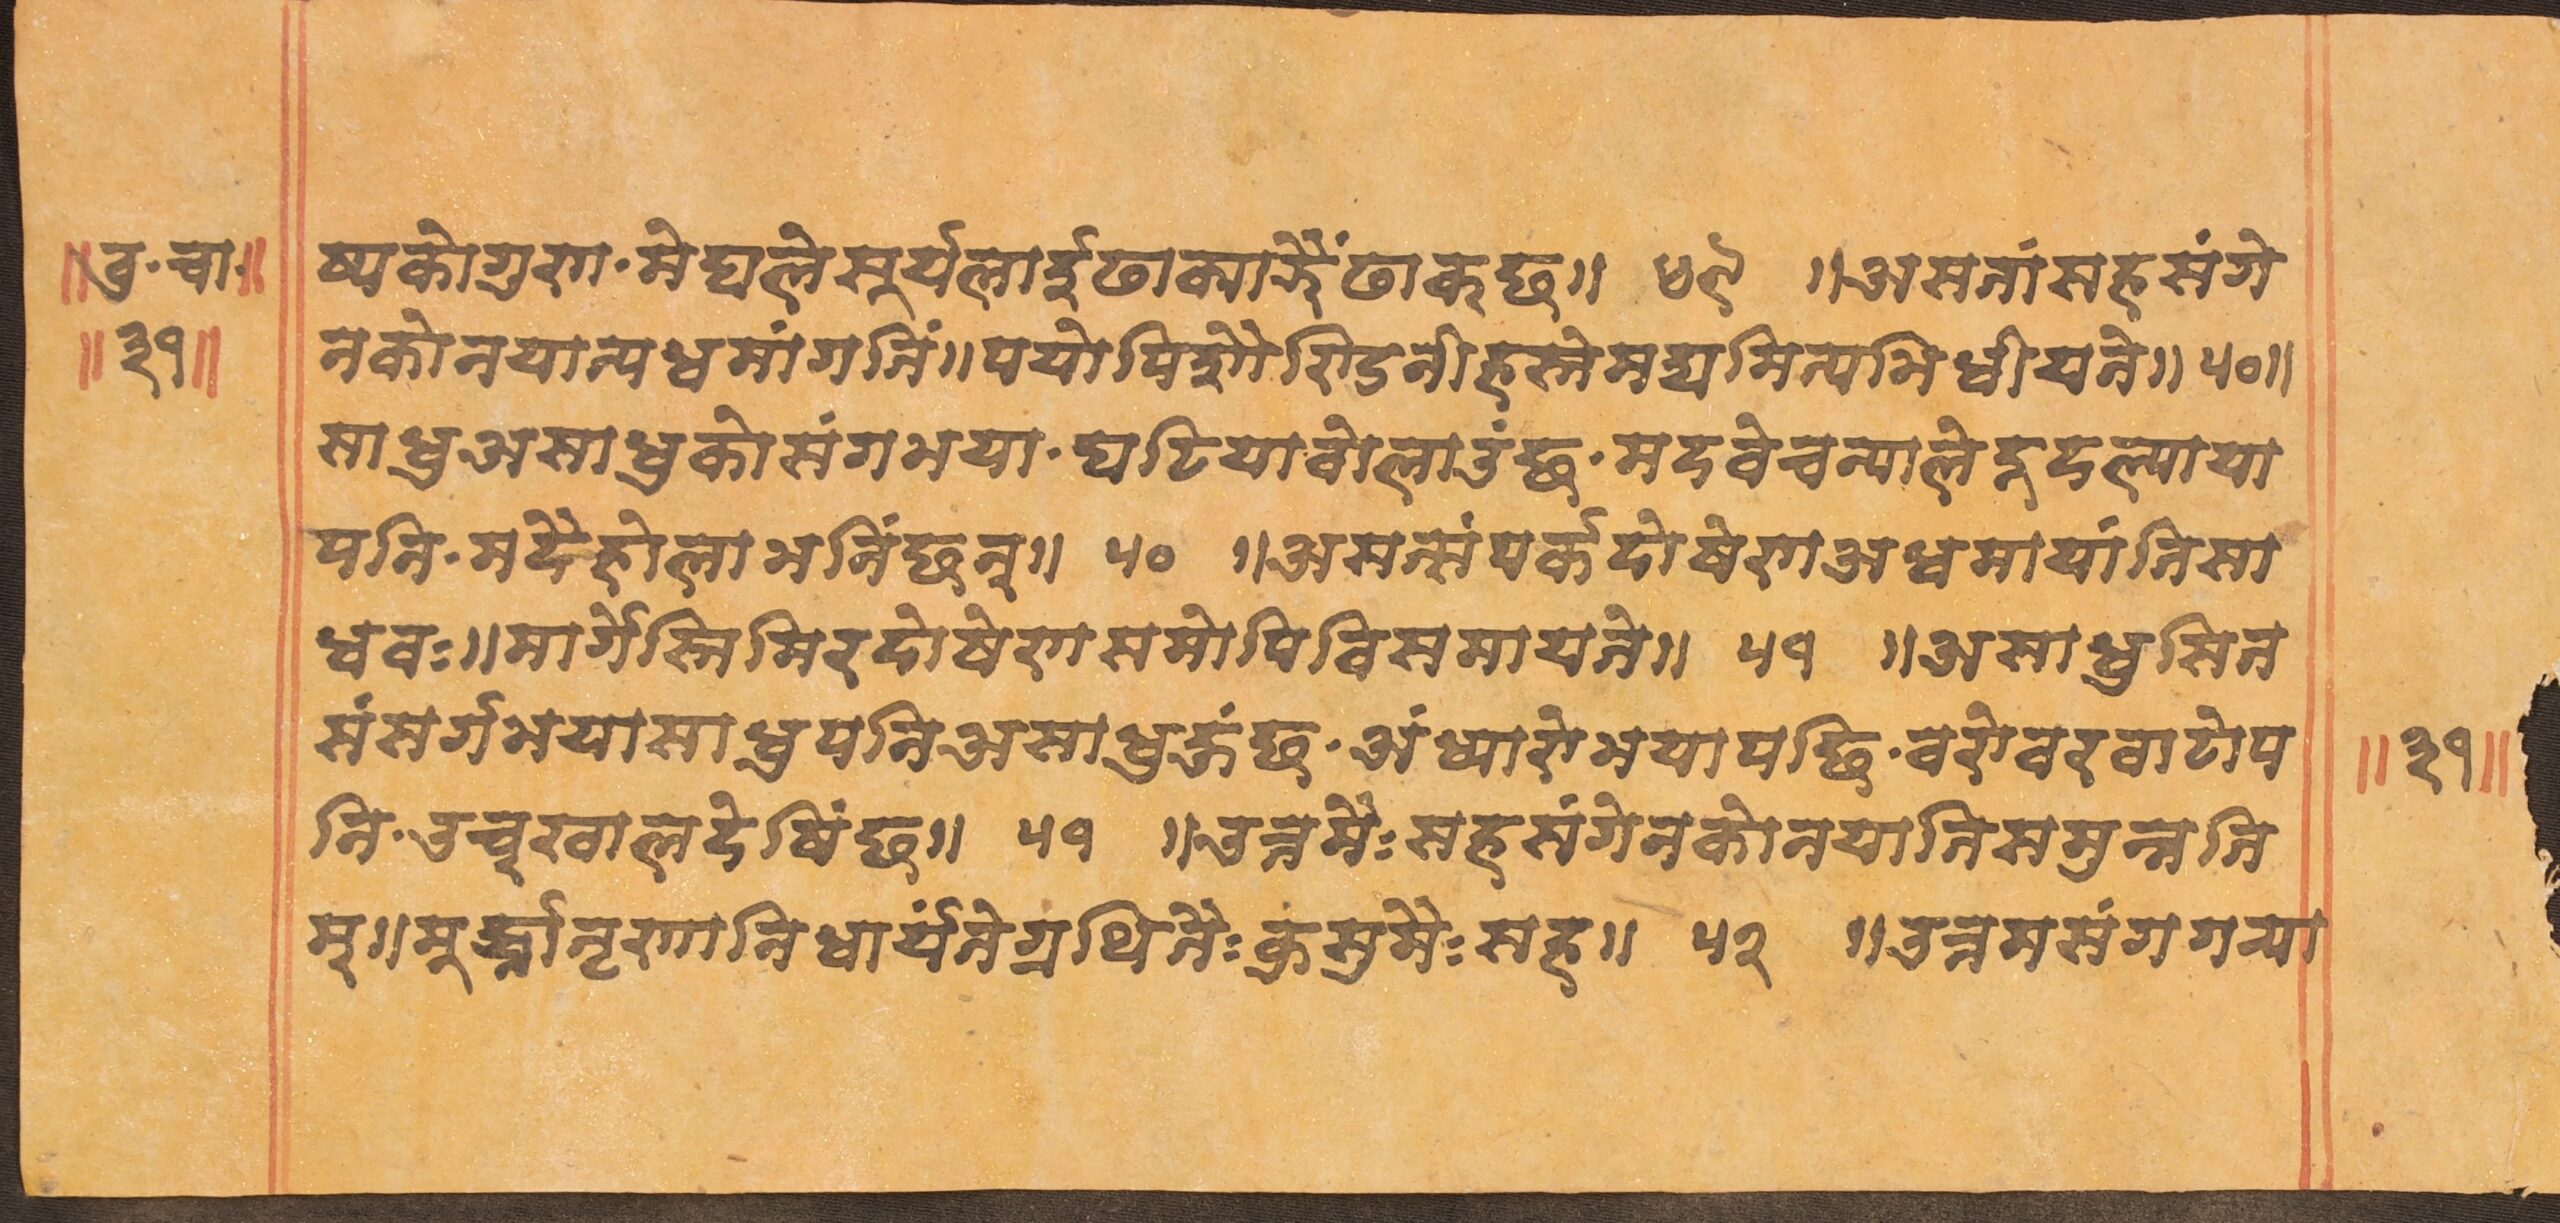 ॥वु·चा·॥
॥३१॥
ष्यकोगुरण·मेघलेसूर्यलाईढाक्याझैंढाक्छ॥ ४९ ॥असतांसहसंगे
नकोनयात्यधमांगतिं॥पयोपिशौण्डिनीहस्तेमद्यमित्यभिधीयते॥५०॥
साधुअसाधुकोसंगभया·घटियाबोलाउंछ·मदवेचन्यालेदूदल्याया
पनि·मदैहोलाभनिंछन्॥ ५० ॥असत्संपर्कदोषेणअधमायांतिसा
धवः॥मार्गेस्तिमिरदोषेणसमोपिविसमायते॥ ५१ ॥असाधुसित
संसर्गभयासाधुपनिअसाधुहुंछ·अंध्यारोभयापछि·वरोवरवाटोप
नि·उच्खालदेषिंछ॥ ५१ ॥उत्तमैःसहसंगेनकोनयातिसमुन्नति
म्॥मूर्द्ध्नातृणानिधार्यंतेग्रथितैःकुसुमैःसह॥ ५२ ॥उत्तमसंगगन्या
॥३१॥